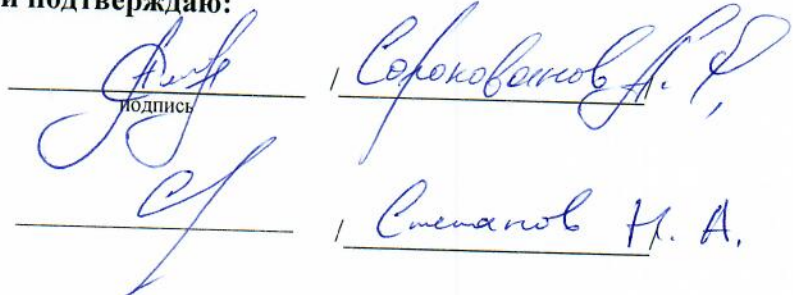 и подтверждаю:
/ Сорокованов А. Ф.
подпись
/ Степанов Н. А.